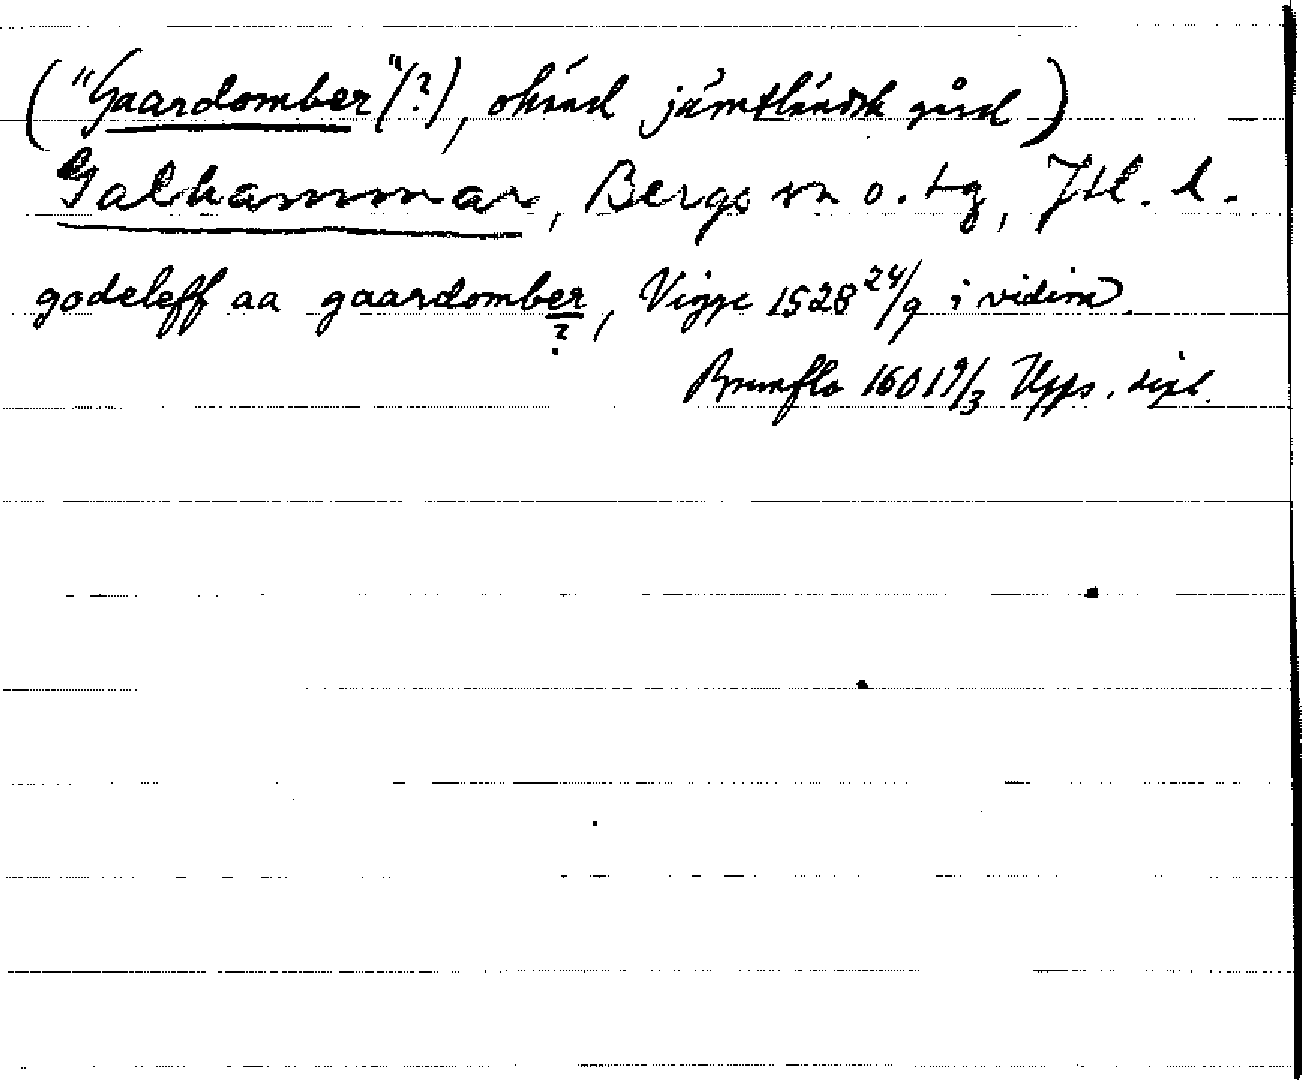 ("Gaardomber"(?), okänd jämtländsk gård)
Galhammar, Bergs sn o. tg, Jtl. l.
godeleff aa gaardomber, Vigge 1528 24/9 i vidim.
?
Brunflo 1601 9/3 Upps. dipl.